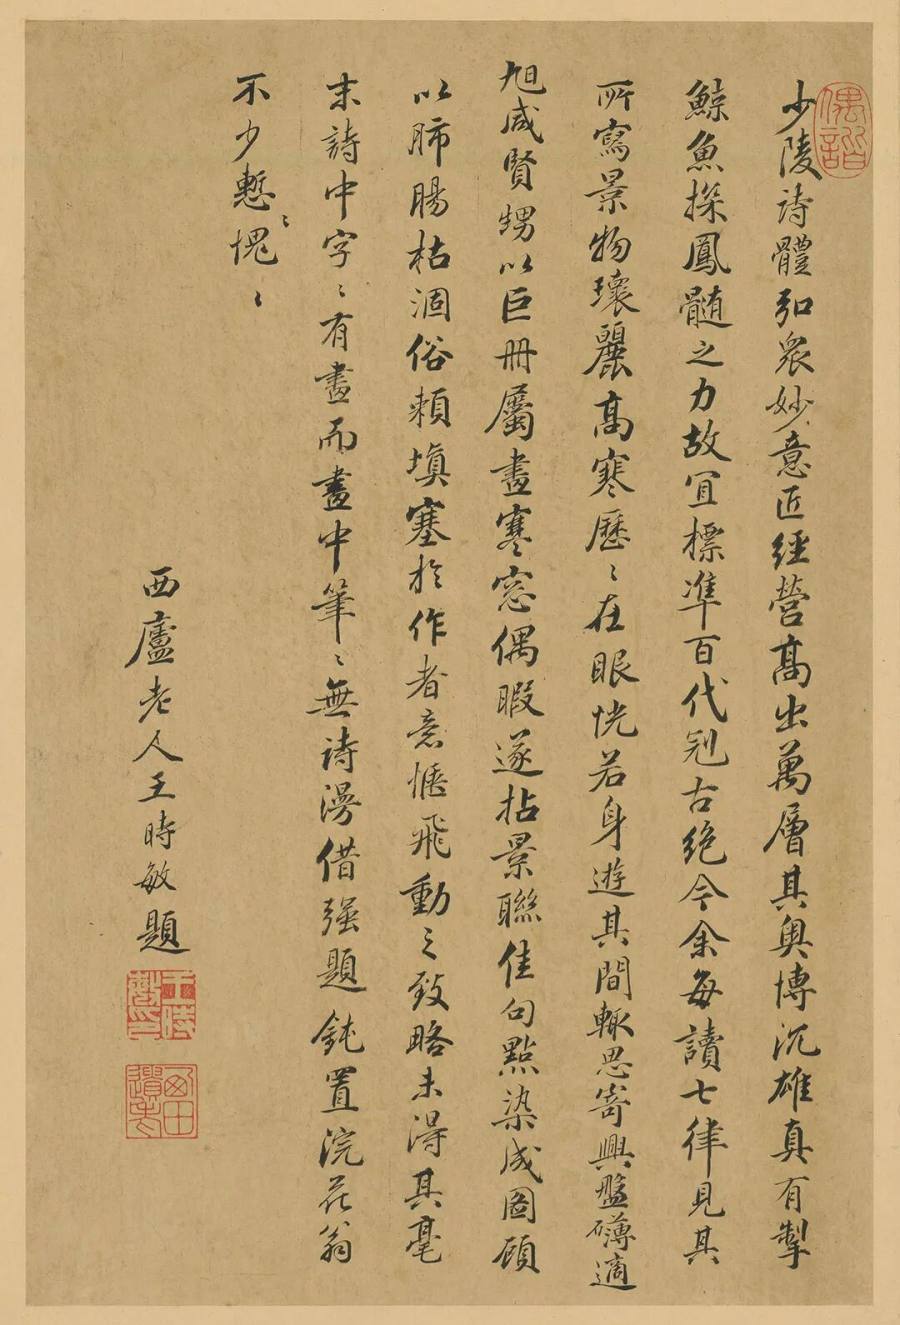 偶諧
少陵詩體弘眾妙意匠經營高出萬層其奧博沉雄真有掣
鯨魚探鳳髓之力故宜標準百代冠古絕今余每讀七律見其
所寫景物瓌麗高寒歷〻在眼恍若身遊其間輒思寄興盤礴適
旭咸賢甥以巨冊屬畫寒窓偶暇遂拈景聯佳句點染成圖顧
以肺腸枯涸俗賴填塞於作者意惬飛動之致略未得其毫
末詩中字〻有畫而畫中筆〻無詩漫借強題鈍置浣花翁
不少慙〻愧〻
西廬老人王時敏題
王時敏印
西田遺老